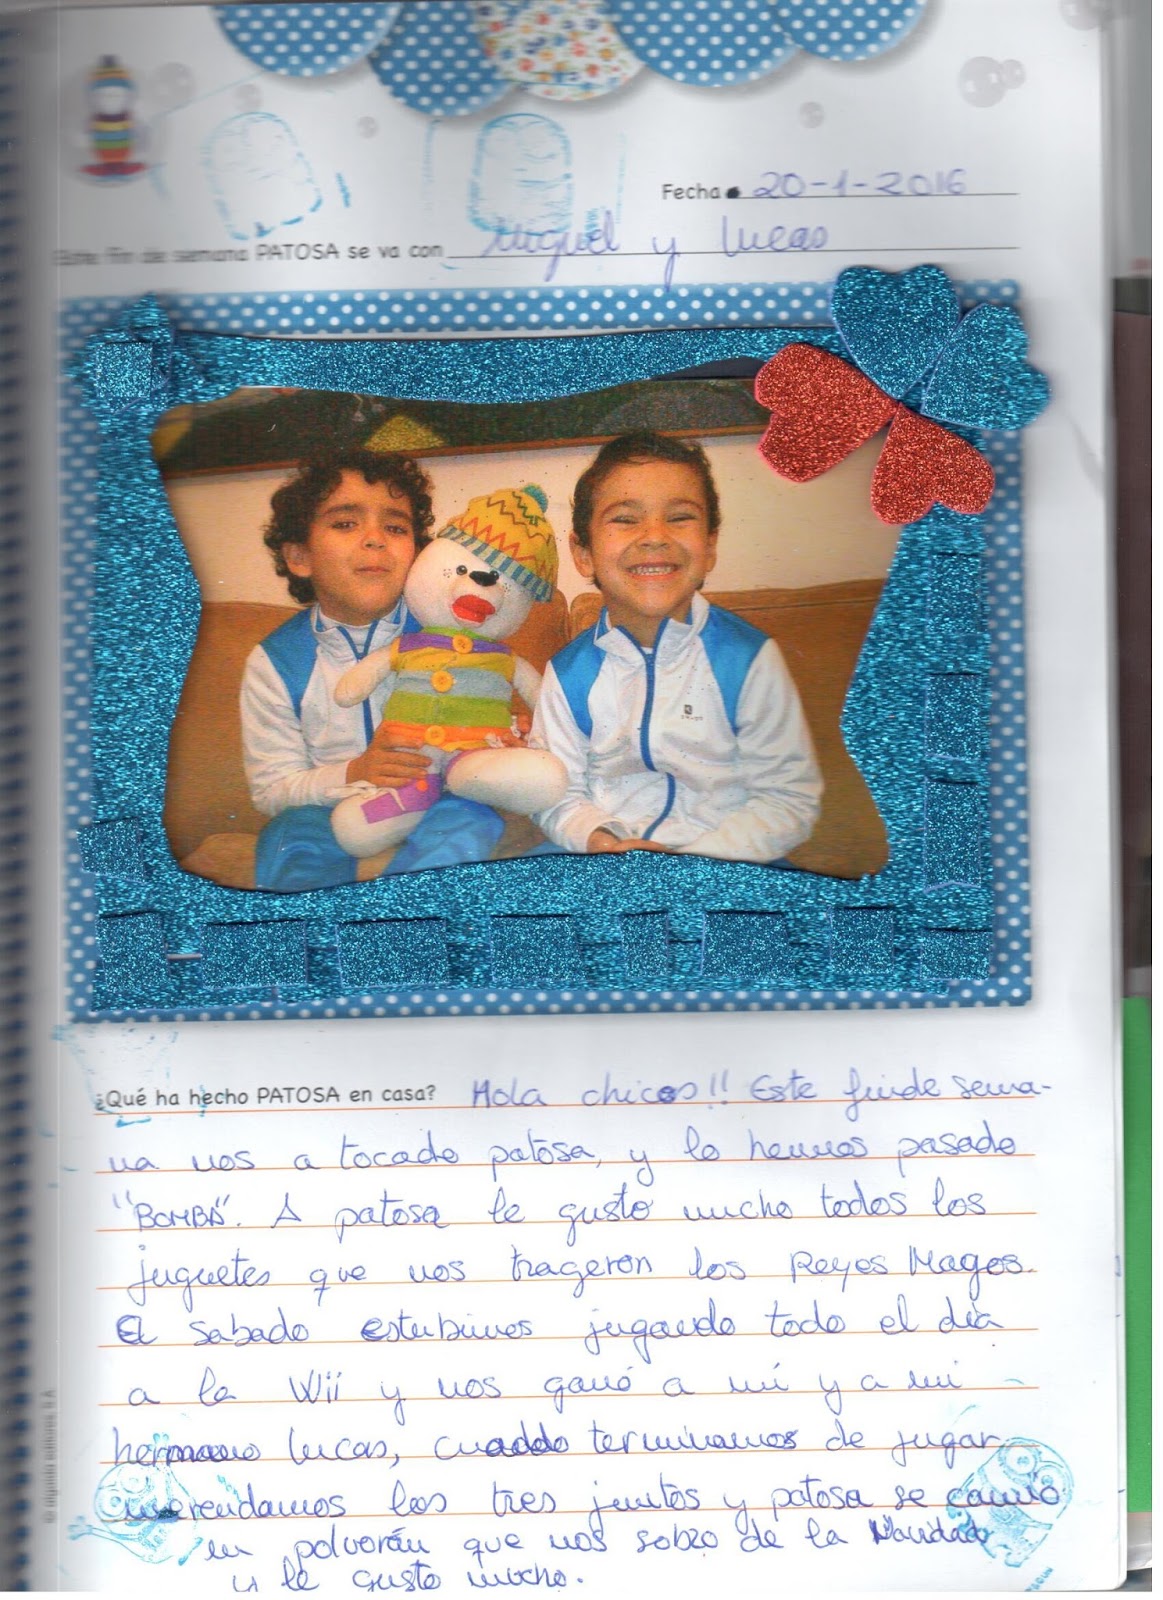 Fecha 20-1-2016
Este fin de semana PATOSA se va con Miguel y Lucas
¿Qué ha hecho PATOSA en casa? Hola chicos!! Este finde sema-
na nos a tocado patosa, y lo hemos pasado
"BOMBA". A patosa le gusto mucho todos los
juguetes que nos trageron los Reyes Magos.
El sabado estubimos jugando todo el día
a la Wii y nos ganó a mí y a mi
hermano Lucas, cuando terminamos de jugar
merendamos los tres juntos y patosa se comió
un polvorón que nos sobro de la Navidad
y le gusto mucho.